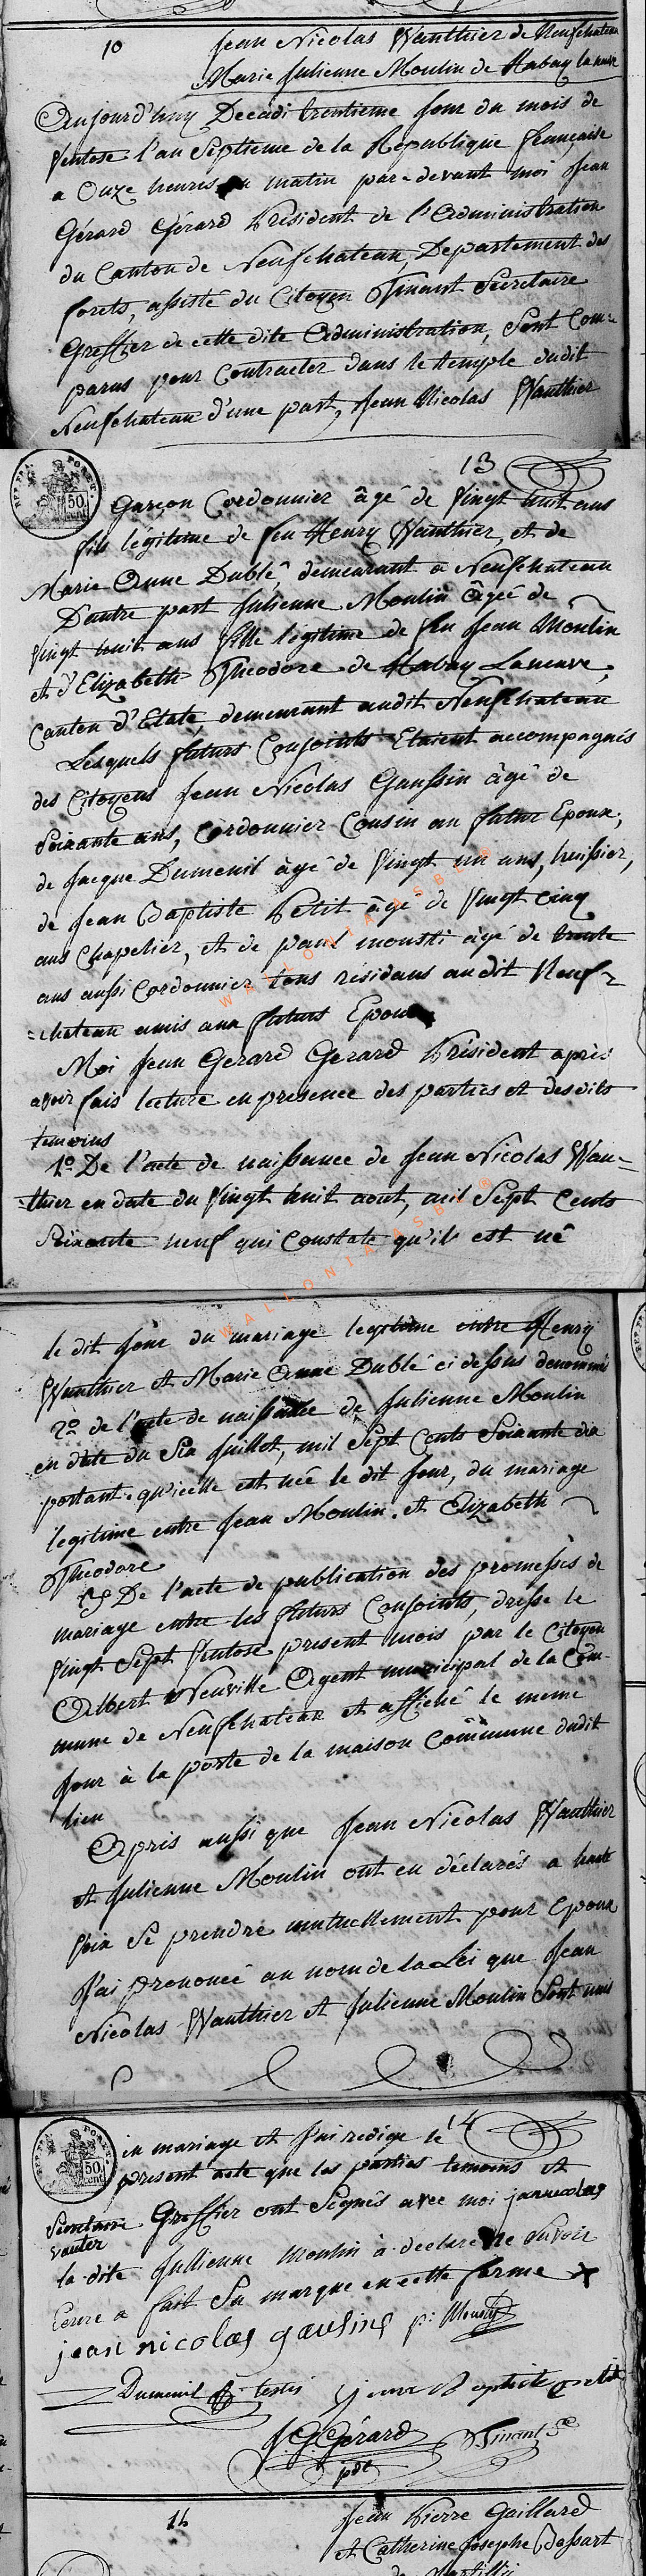 10
Jean Nicolas Wauthier de Neufchateau
Marie Julienne Moulin de Habay la neuve
Aujourd'huy Decadi trentieme jour du mois de
Ventose l'an Septieme de la Republique française
a Onze heures du matin par-devant moi Jean
Gerard Gérard Président de l'Administration
du Canton de Neufchateau, Departement des
forets, assisté du Citoyen Thinant Secretaire
Greffier de cette dite Administration, Sont Com=
parus pour Contracter dans le temple dudit
Neufchateau d'une part, Jean Nicolas Wauthier
13
50
cent
Garçon Cordonnier âgé de Vingt huit ans
fils légitime de feu Henry Wauthier, et de
Marie Anne Dublé, demeurant a Neufchateau
D'autre part Julienne Moulin âgée de
Vingt huit ans fille légitime de feu Jean Moulin
et d'Elizabeth Theodore de Habay Laneuve,
Canton d'Etale demeurant audit Neufchateau
Lesquels futurs Conjoints Etaient accompagnés
des Citoyens Jean Nicolas Gaussin âgé de
Soixante ans, Cordonnier Cousin au futur Epoux,
de Jacque Dumenil âgé de Vingt un ans, huissier,
de Jean Baptiste Petit âgé de Vingt cinq
ans Chapelier, et de paul mousti âgé de trente
ans aussi Cordonnier tous résidans audit Neuf=
=chateau amis aux futurs Epoux
Moi Jean Gerard Gerard Président après
avoir fais lecture en presence des parties et desdits
temoins
1º De l'acte de naissance de Jean Nicolas Wau=
=thier en date du Vingt huit aout, mil Sept Cents
Soixante neuf qui Constate qu'il est né
WALLONIA ASBL ®
WALLONIA ASBL ®
le dit jour du mariage legitime entre Henry
Wauthier et Marie Anne Dublé ci dessus denommé
2º de l'acte de naissance de Julienne Moulin
en date du Six Juillet, mil Sept Cents Soixante dix
portant qu'icelle est née le dit jour, du mariage
legitime entre Jean Moulin et Elizabeth
Theodore
De l'acte de publication des promesses de
mariage entre les futurs Conjoints, dressé le
Vingt Sept Ventose present mois par le Citoyen
Albert Neuville Agent municipal de la Com-
mune de Neufchateau et affiché le meme
jour à la porte de la maison Commune dudit
lieu
Apris aussi que Jean Nicolas Wauthier
et Julienne Moulin ont eu déclarés a haute
Voix Se prendre mutuellement pour Epoux
J'ai prenoncé au nom de la Loi que Jean
Nicolas Wauthier et Julienne Moulin Sont unis
14
50
cent
en mariage et j'ai redigé le
present acte que les parties temoins et
Secretaire Greffier ont Signés avec moi jannicolas
vauter
la dite Jullienne Moulin à declaré ne Savoir
Ecrire a fait Sa marque en cette forme x
jean nicolas gausins p: Mousty
Dumenil testis jean Baptiste petit
J G Gérard Thinant
pdt
11
Jean Pierre Gaillard
et Catherine Josephe Dessart